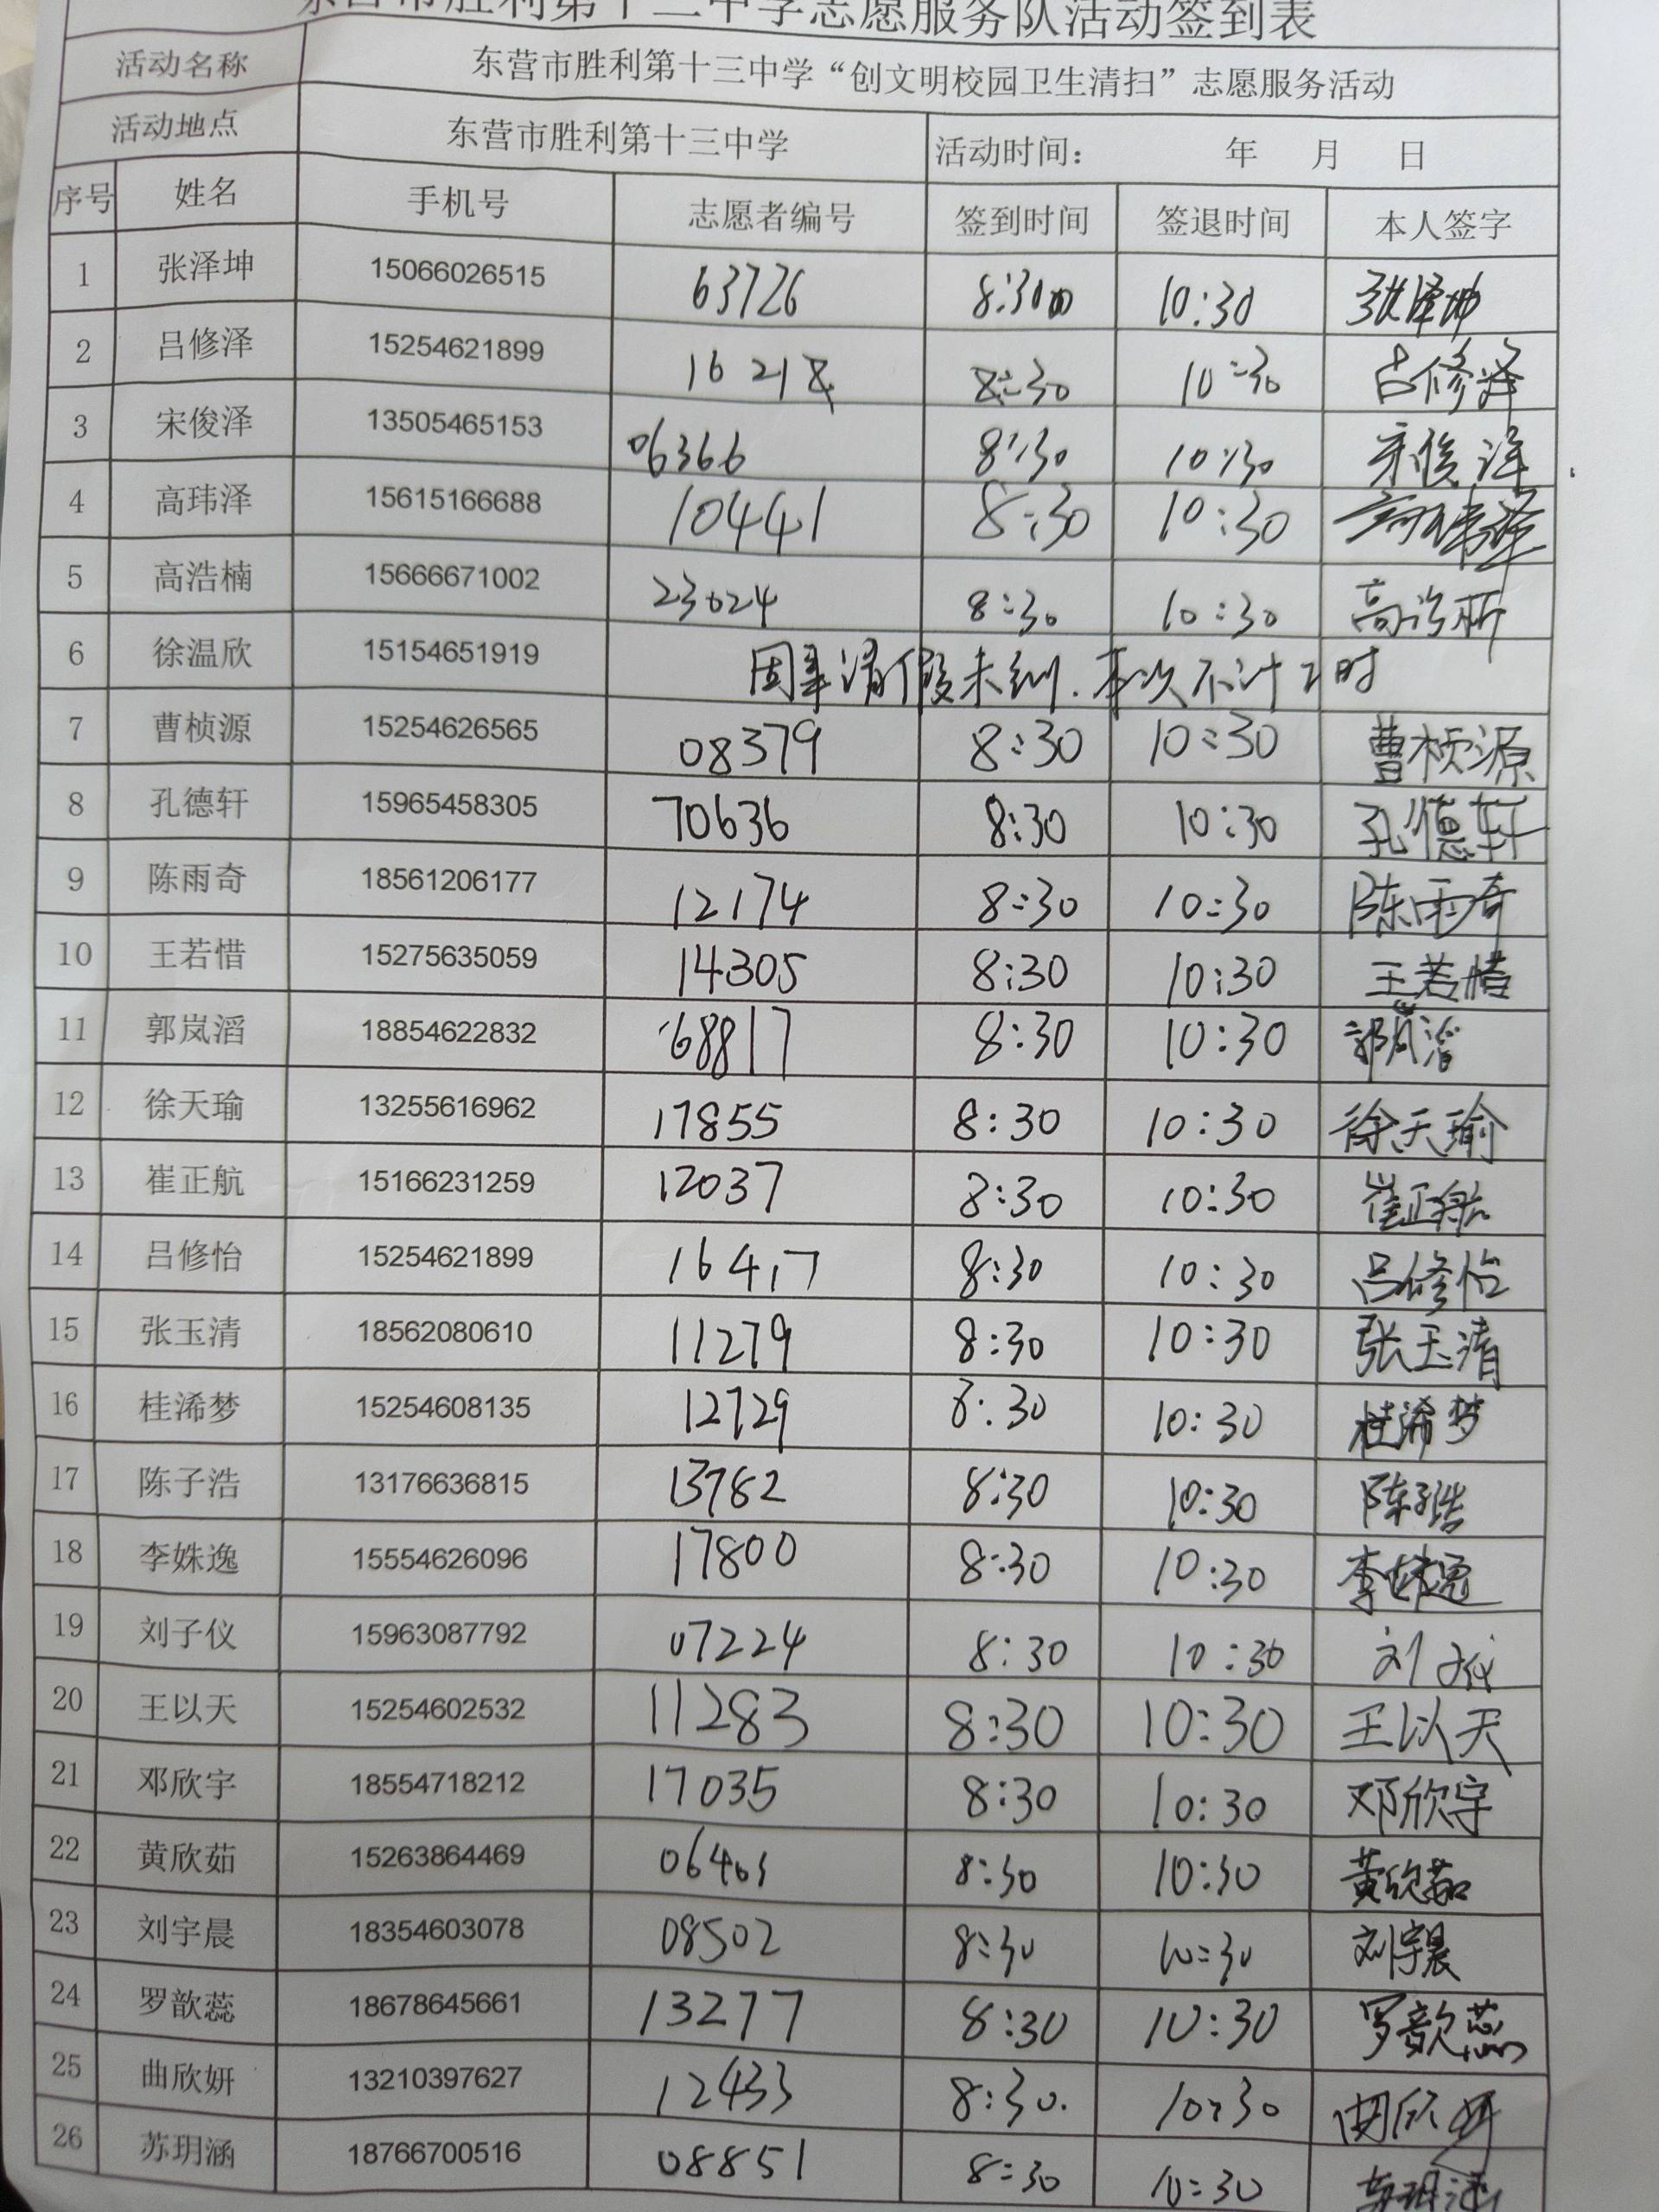 东营市胜利第十三中学志愿服务队活动签到表
活动名称 东营市胜利第十三中学“创文明校园卫生清扫”志愿服务活动
活动地点 东营市胜利第十三中学 活动时间： 年 月 日
序号 姓名 手机号 志愿者编号 签到时间 签退时间 本人签字
1 张泽坤 15066026515 63726 8:30 10:30 张泽坤
2 吕修泽 15254621899 16218 8:30 10:30 吕修泽
3 宋俊泽 13505465153 06366 8:30 10:30 宋俊泽
4 高玮泽 15615166688 10441 8:30 10:30 高玮泽
5 高浩楠 15666671002 23024 8:30 10:30 高浩楠
6 徐温欣 15154651919 因事请假未到.本次不计工时
7 曹桢源 15254626565 08379 8:30 10:30 曹桢源
8 孔德轩 15965458305 70636 8:30 10:30 孔德轩
9 陈雨奇 18561206177 12174 8:30 10:30 陈雨奇
10 王若惜 15275635059 14305 8:30 10:30 王若惜
11 郭岚滔 18854622832 68817 8:30 10:30 郭岚滔
12 徐天瑜 13255616962 17855 8:30 10:30 徐天瑜
13 崔正航 15166231259 12037 8:30 10:30 崔正航
14 吕修怡 15254621899 16417 8:30 10:30 吕修怡
15 张玉清 18562080610 11279 8:30 10:30 张玉清
16 桂浠梦 15254608135 12729 8:30 10:30 桂浠梦
17 陈子浩 13176636815 13782 8:30 10:30 陈子浩
18 李姝逸 15554626096 17800 8:30 10:30 李姝逸
19 刘子仪 15963087792 07224 8:30 10:30 刘子仪
20 王以天 15254602532 11283 8:30 10:30 王以天
21 邓欣宇 18554718212 17035 8:30 10:30 邓欣宇
22 黄欣茹 15263864469 8:30 10:30 黄欣茹
23 刘宇晨 18354603078 08502 8:30 10:30 刘宇晨
24 罗歆蕊 18678645661 13277 8:30 10:30 罗歆蕊
25 曲欣妍 13210397627 12433 8:30. 10:30 曲欣妍
26 苏玥涵 18766700516 08851 8:30 10:30 苏玥涵